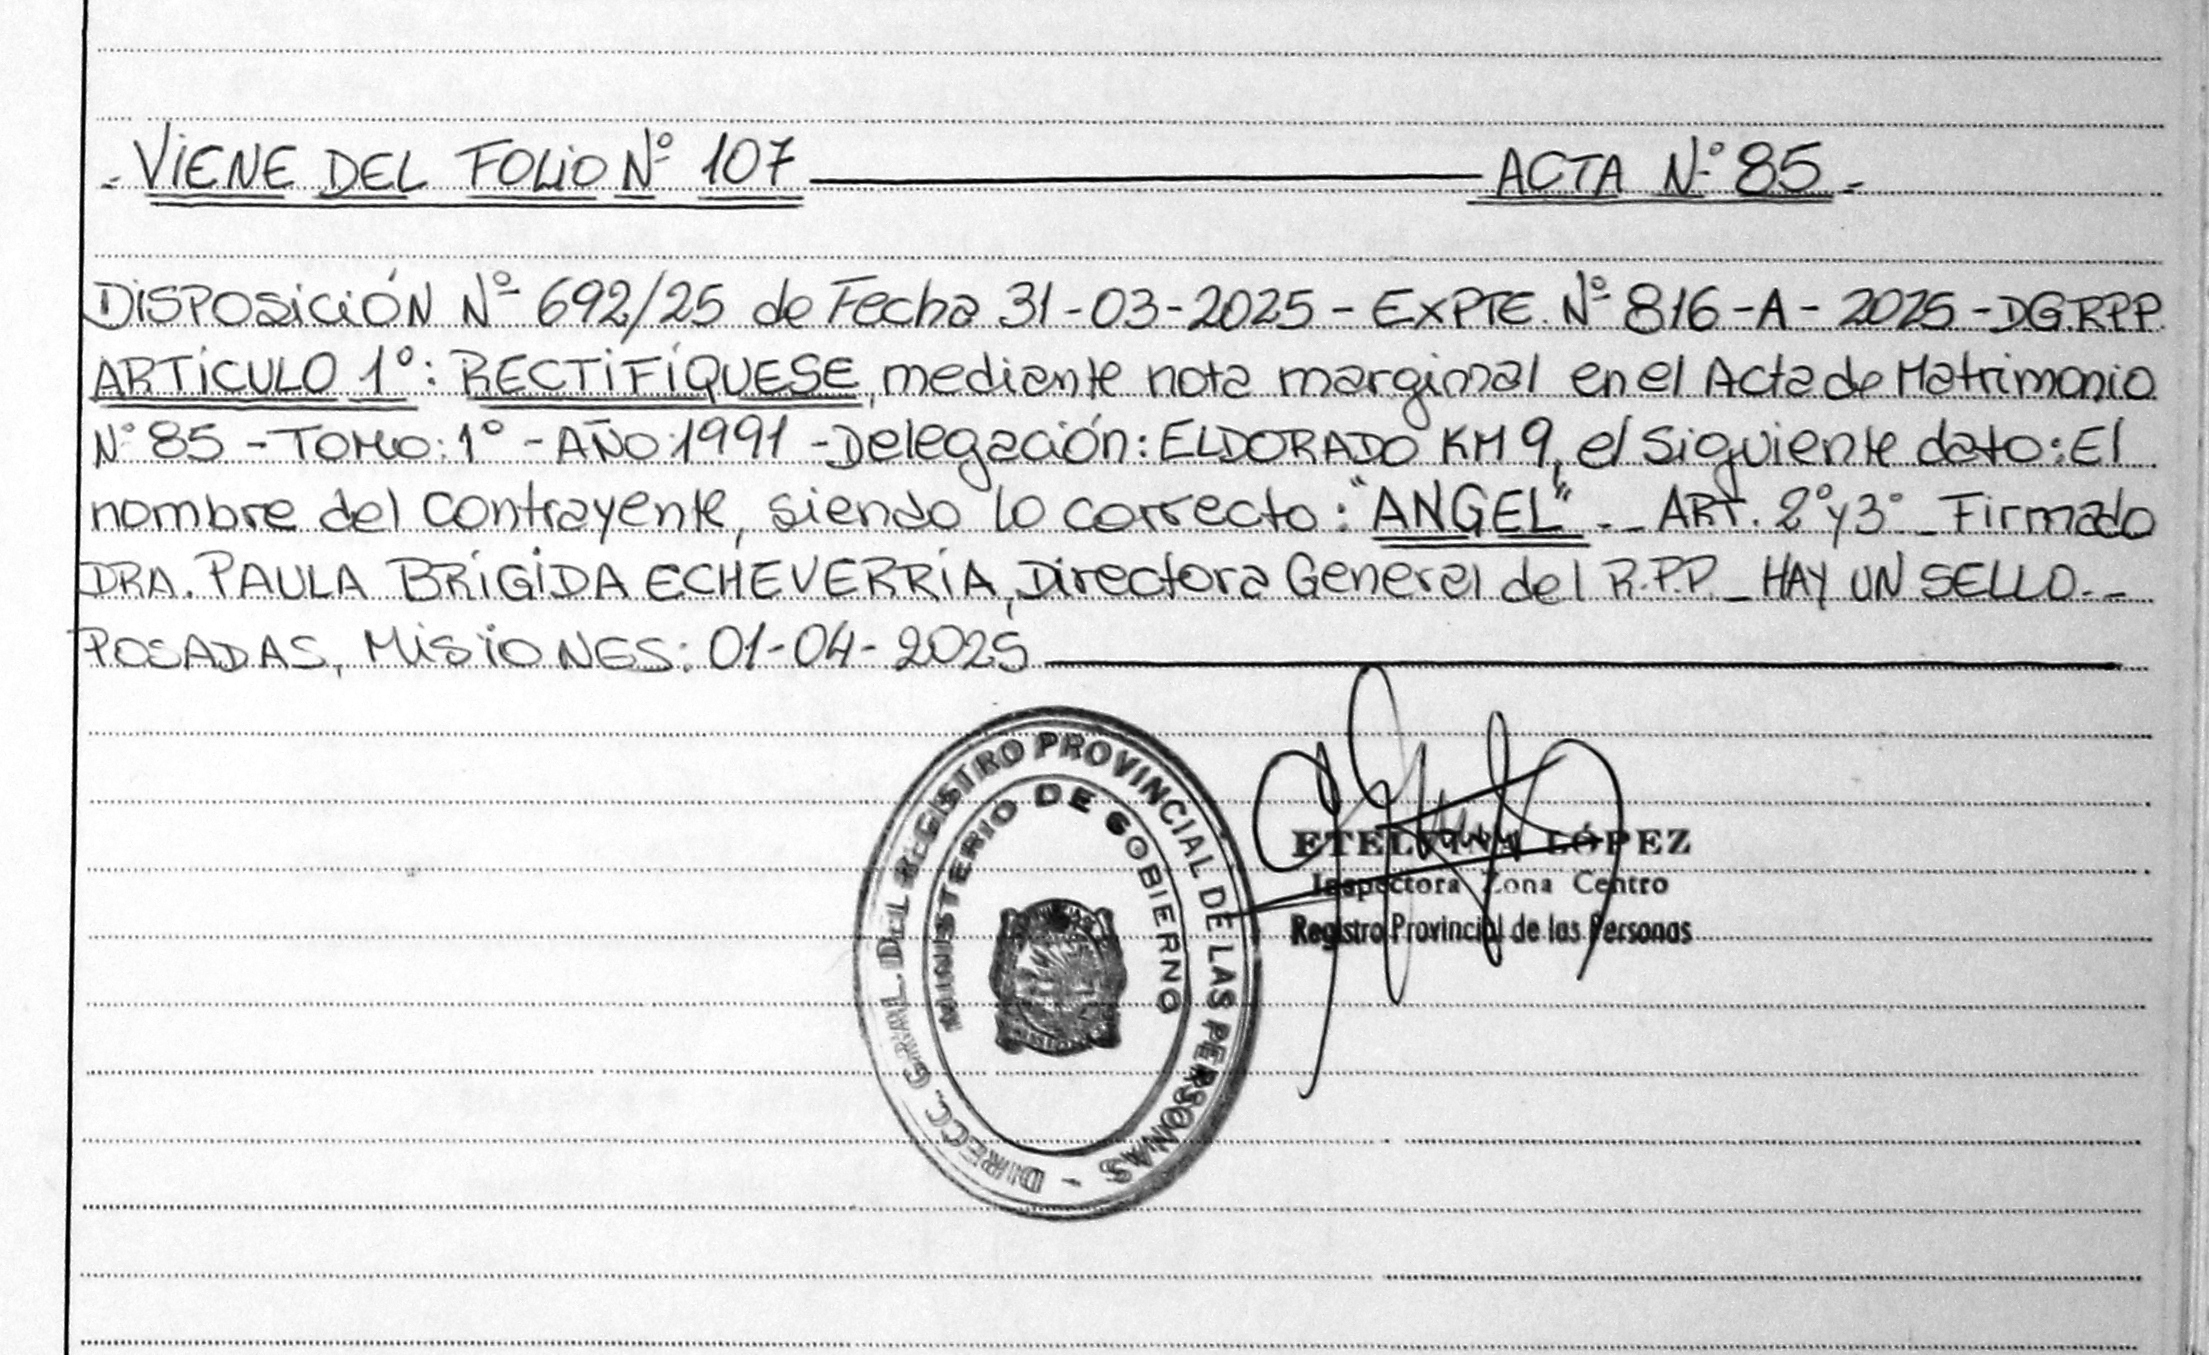 - VIENE DEL FOLIO Nº 107 ACTA Nº 85 -
DISPOSICIÓN Nº 692/25 de Fecha 31-03-2025 - EXPTE. Nº 816-A- 2025 -DG.R.P.P.
ARTÍCULO 1º: RECTIFÍQUESE, mediante nota marginal en el Acta de Matrimonio
Nº 85 - TOMO: 1º - AÑO: 1991 - Delegación: ELDORADO KM 9, el siguiente dato: El
nombre del contrayente, siendo lo correcto: "ANGEL". _ ART. 2º y 3º _ Firmado
DRA. PAULA BRÍGIDA ECHEVERRÍA, Directora General del R.P.P. _ HAY UN SELLO. _
POSADAS, MISIONES: 01-04-2025
DIRECC. GRAL. DEL REGISTRO PROVINCIAL DE LAS PERSONAS -
MINISTERIO DE GOBIERNO
ETELVINA LÓPEZ
Inspectora Zona Centro
Registro Provincial de las Personas